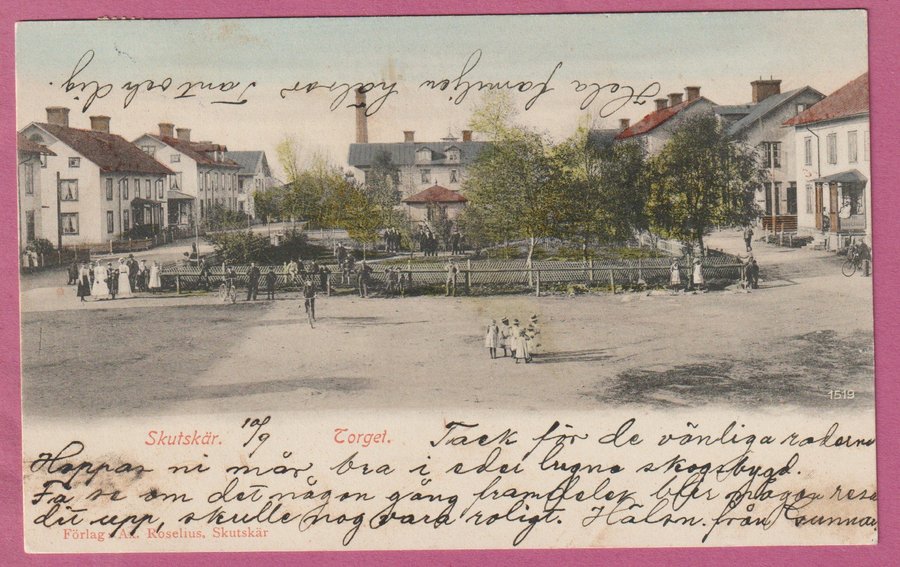 Hela familjen hälsar Tant och dig.
1519
Skutskär. 10/9 Torget. Tack för de vänliga raderne
Hoppas ni mår bra i eder lugna skogsbygd.
Få se om det någon gång framdeles blir någon resa
dit upp, skulle nog vara roligt. Hälsn. från Gunnar.
Förlag: Ax. Roselius, Skutskär